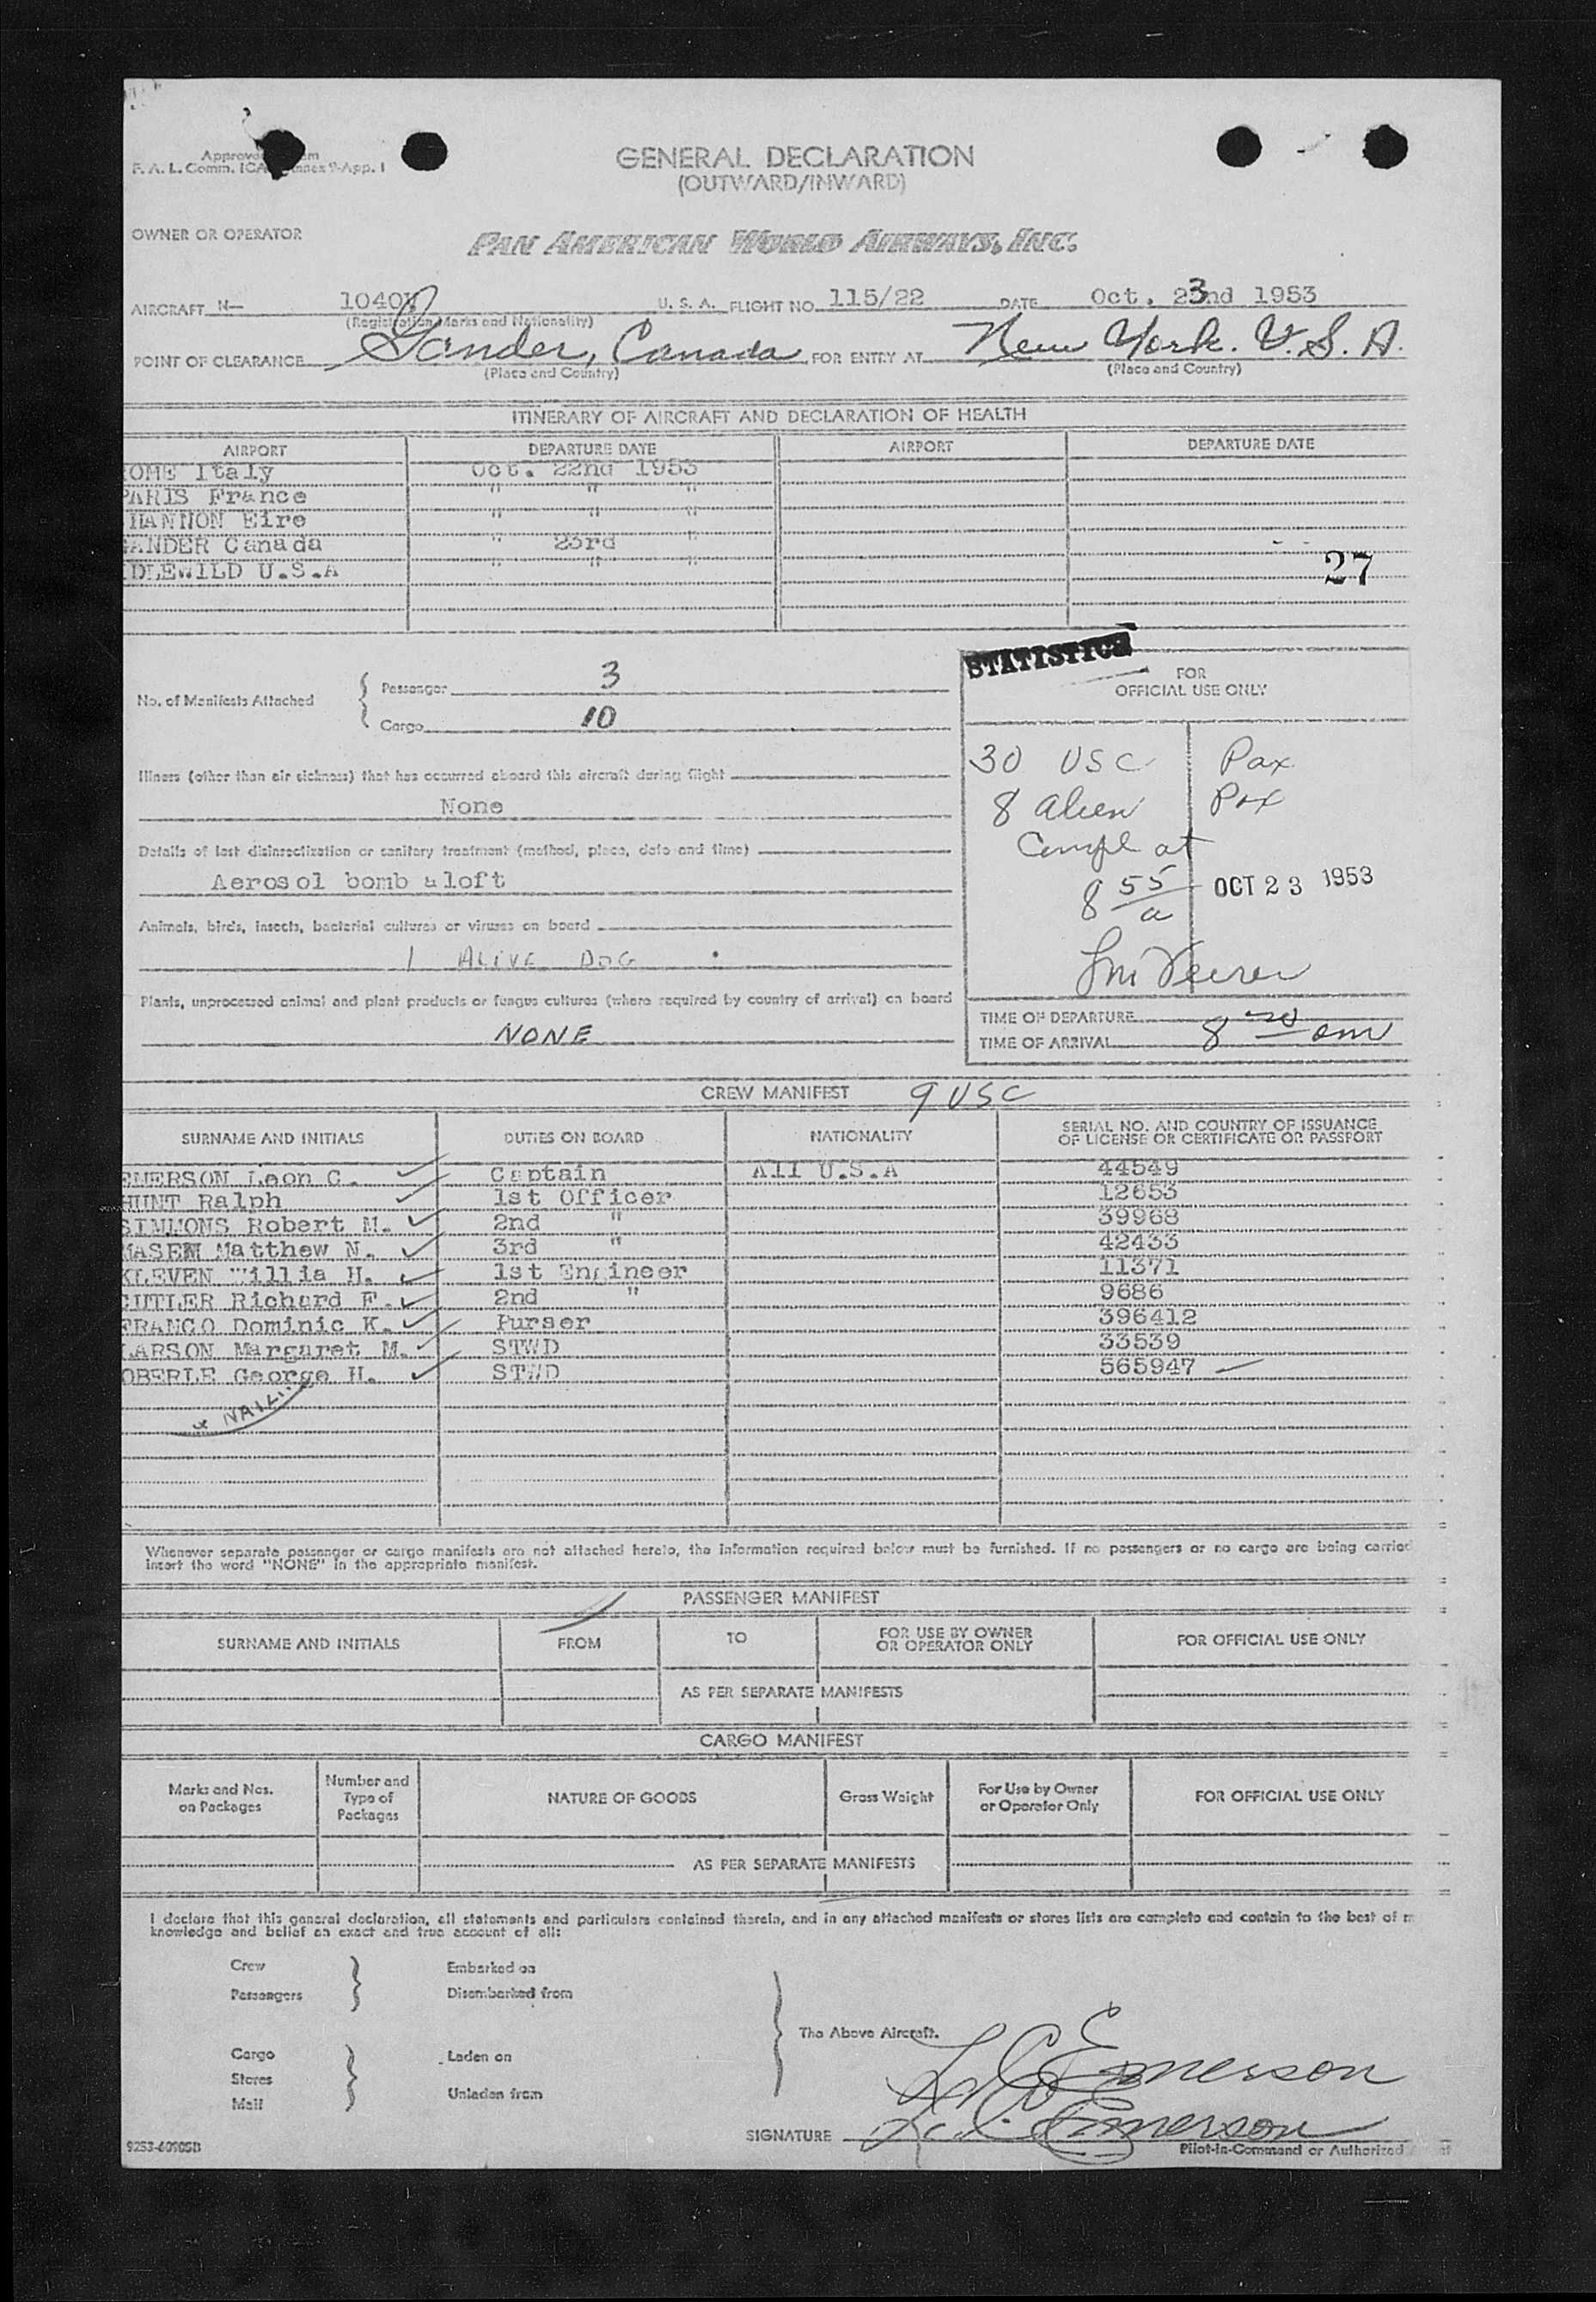 GENERAL DECLARATION
(OUTWARD/INWARD)
F. A. L. Comm. App. 1
OWNER OR OPERATOR PAN AMERICAN WORLD AIRWAYS, INC.
AIRCRAFT N— 1040V U. S. A. FLIGHT NO. 115/22 DATE Oct. 23nd 1953
(Registration Marks and Nationality)
POINT OF CLEARANCE Gander, Canada FOR ENTRY AT New York. U.S.A.
(Place and Country) (Place and Country)
ITINERARY OF AIRCRAFT AND DECLARATION OF HEALTH
AIRPORT DEPARTURE DATE AIRPORT DEPARTURE DATE
OME Italy Oct. 22nd 1953
PARIS France " " "
HANNON Eire " " "
ANDER Canada " 23rd "
DLEWILD U.S.A " " "
27
STATISTICS
FOR
OFFICIAL USE ONLY
No. of Manifests Attached { Passenger 3
Cargo 10
30 USC Pax
8 alien Pax
Compl at
8 55 a
OCT 23 1953
Illness (other than air sickness) that has occurred aboard this aircraft during flight
None
Details of last disinsectization or sanitary treatment (method, place, date and time)
Aerosol bomb aloft
Animals, birds, insects, bacterial cultures or viruses on board
1 ALIVE DOG
Plants, unprocessed animal and plant products or fungus cultures (where required by country of arrival) on board
NONE
TIME OF DEPARTURE
TIME OF ARRIVAL 8 20 am
CREW MANIFEST 9 USC
SURNAME AND INITIALS DUTIES ON BOARD NATIONALITY SERIAL NO. AND COUNTRY OF ISSUANCE
OF LICENSE OR CERTIFICATE OR PASSPORT
EMERSON Leon C. Captain All U.S.A 44549
HUNT Ralph 1st Officer 12653
SIMMONS Robert M. 2nd " 39968
MASEM Matthew N. 3rd " 42433
KLEVEN Willia H. 1st Engineer 11371
CUTLER Richard F. 2nd " 9686
FRANCO Dominic K. Purser 396412
LARSON Margaret M. STWD 33539
OBERLE George H. STWD 565947
Whenever separate passenger or cargo manifests are not attached hereto, the information required below must be furnished. If no passengers or no cargo are being carried
insert the word "NONE" in the appropriate manifest.
PASSENGER MANIFEST
SURNAME AND INITIALS FROM TO FOR USE BY OWNER
OR OPERATOR ONLY FOR OFFICIAL USE ONLY
AS PER SEPARATE MANIFESTS
CARGO MANIFEST
Marks and Nos.
on Packages Number and
Type of
Packages NATURE OF GOODS Gross Weight For Use by Owner
or Operator Only FOR OFFICIAL USE ONLY
AS PER SEPARATE MANIFESTS
I declare that this general declaration, all statements and particulars contained therein, and in any attached manifests or stores lists are complete and contain to the best of m
knowledge and belief an exact and true account of all:
Crew Embarked on
Passengers Disembarked from
The Above Aircraft.
Cargo Laden on
Stores
Mail Unladen from
L C Emerson
SIGNATURE L. C. Emerson
Pilot-in-Command or Authorized
9253-60905B